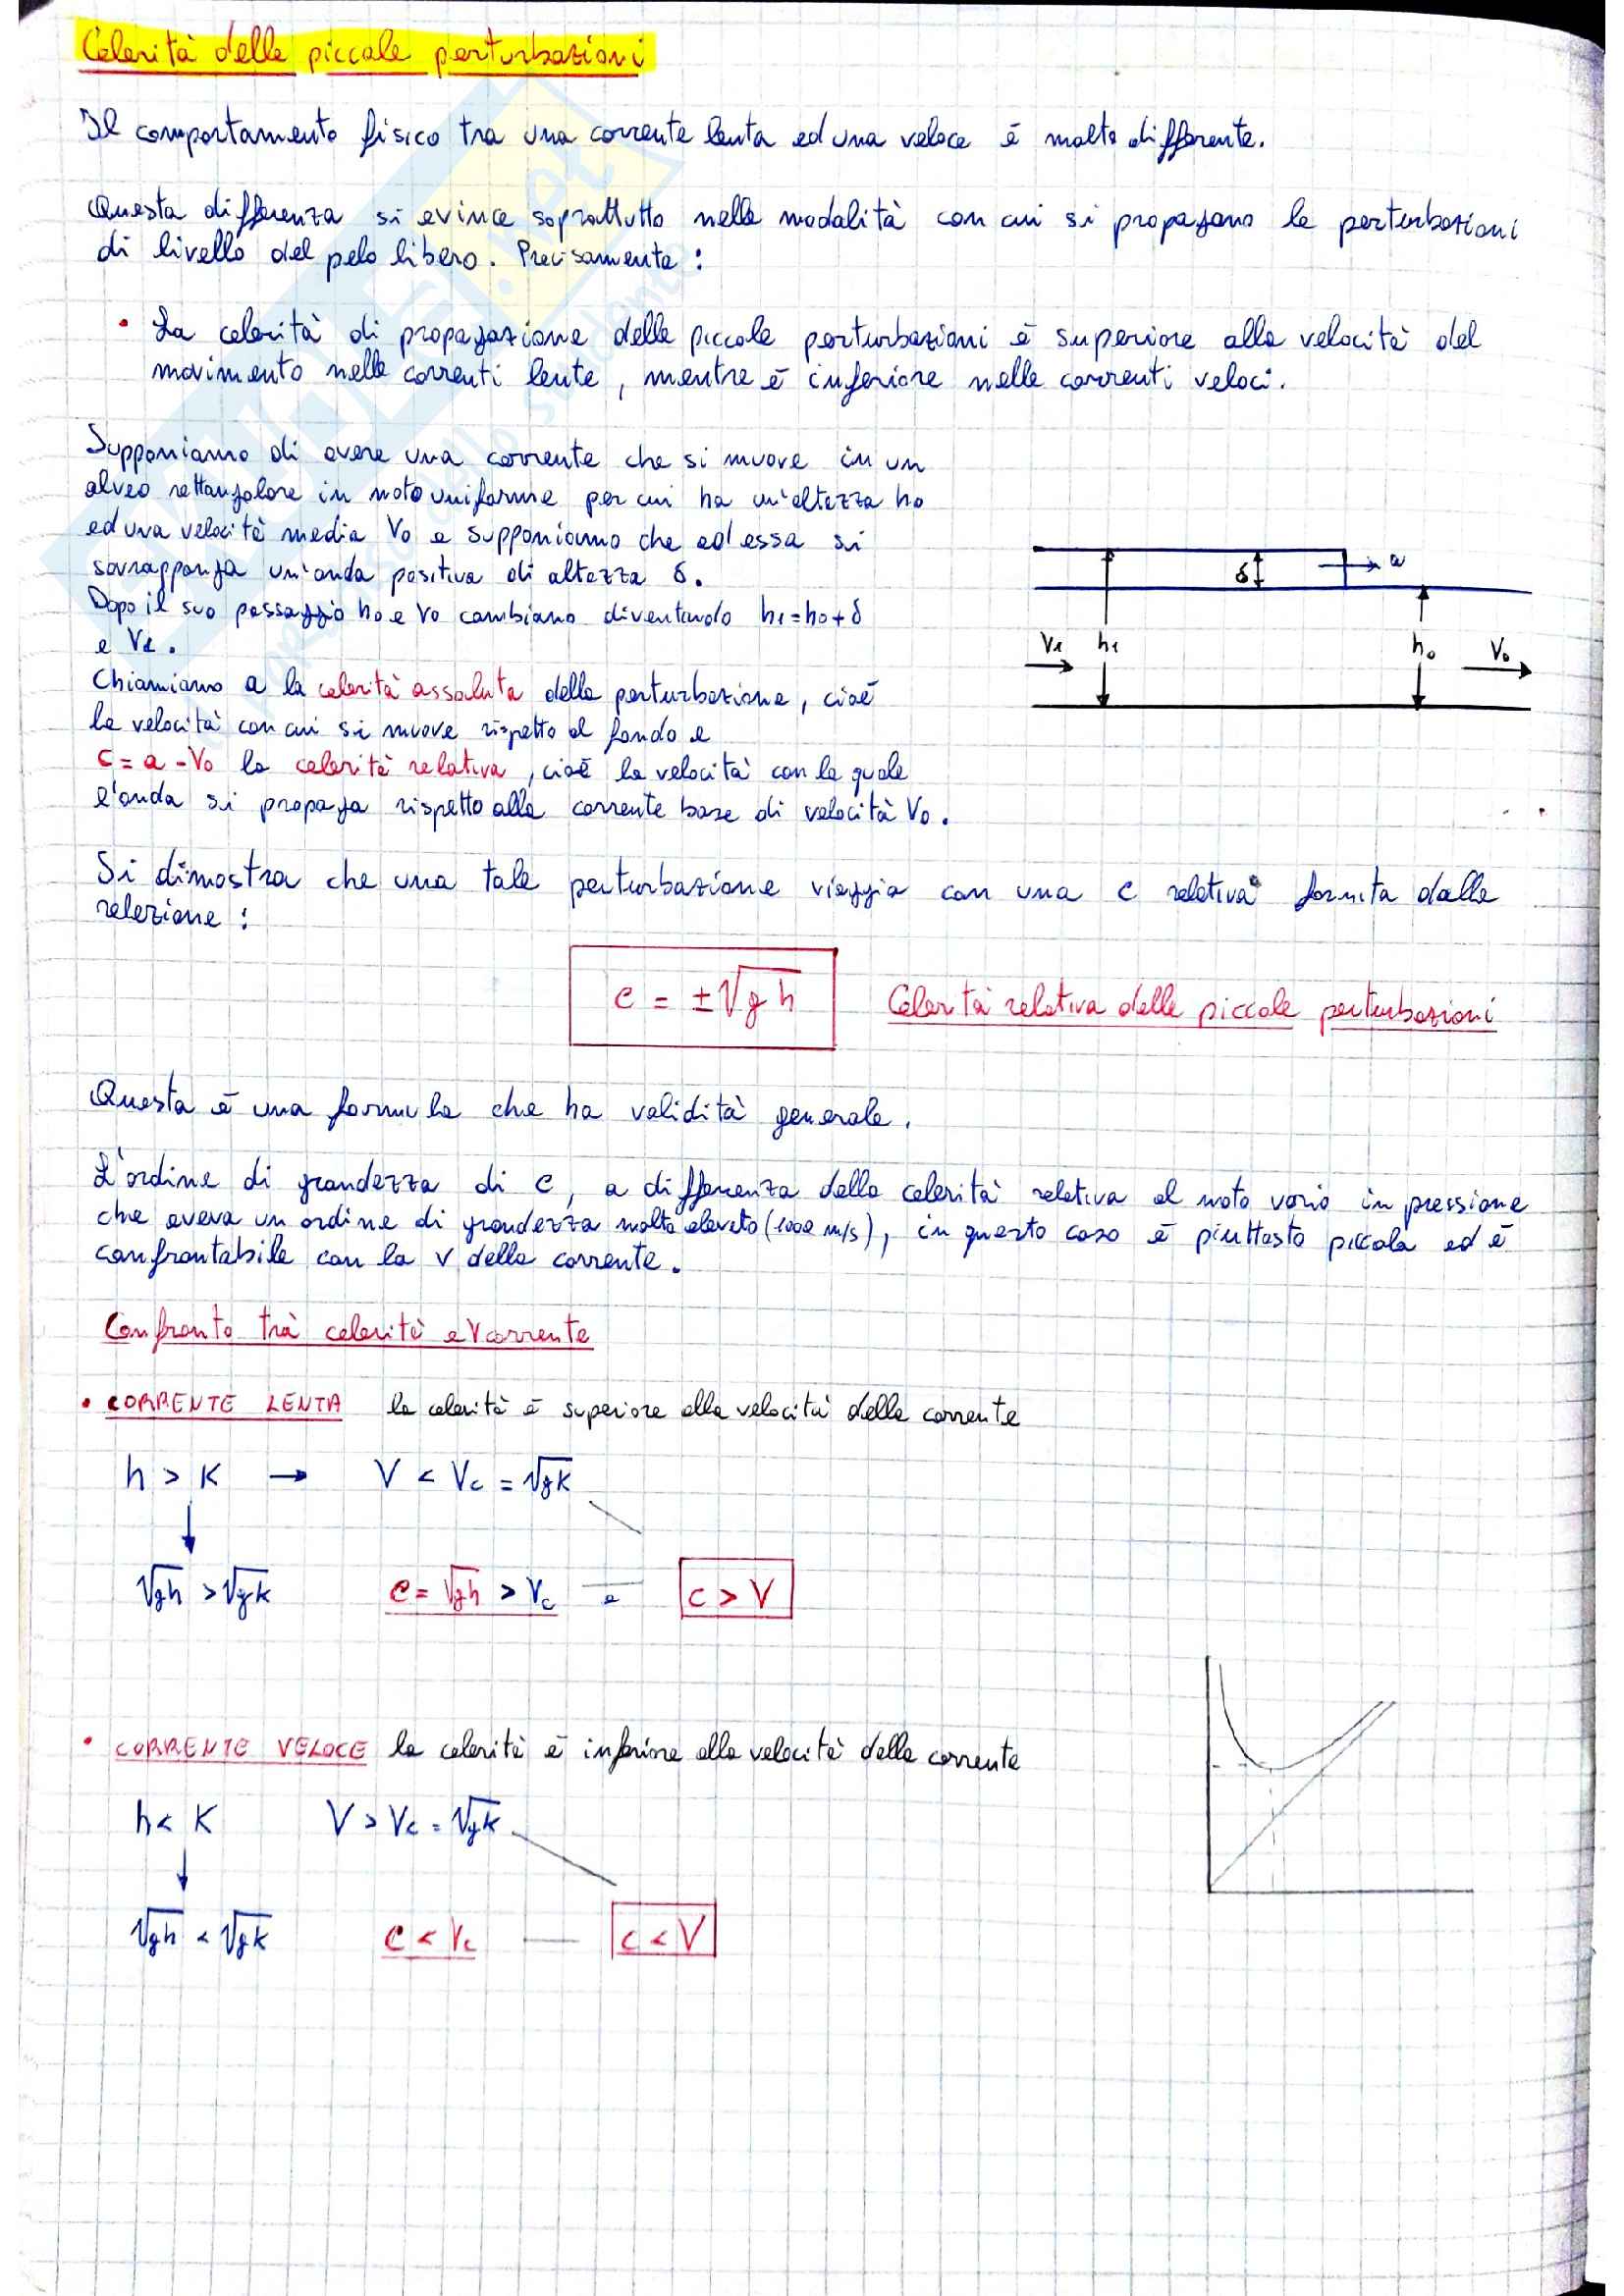 Celerità delle piccole perturbazioni
Il comportamento fisico tra una corrente lenta ed una veloce è molto differente.
Questa differenza si evince soprattutto nelle modalità con cui si propagano le perturbazioni
di livello del pelo libero. Precisamente:
• La celerità di propagazione delle piccole perturbazioni è superiore alla velocità del
movimento nelle correnti lente, mentre è inferiore nelle correnti veloci.
Supponiamo di avere una corrente che si muove in un
alveo rettangolare in moto uniforme per cui ha un'altezza h0
ed una velocità media V0 e supponiamo che ad essa si
sovrapponga un'onda positiva di altezza δ.
Dopo il suo passaggio h0 e V0 cambiano diventando h1=h0+δ
e V1.
Chiamiamo a la celerità assoluta della perturbazione, cioè
la velocità con cui si muove rispetto al fondo e
c = a - V0 la celerità relativa, cioè la velocità con la quale
l'onda si propaga rispetto alla corrente base di velocità V0.
δ a
V1 h1 h0 V0
Si dimostra che una tale perturbazione viaggia con una c relativa fornita dalla
relazione:
c = ±√gh Celerità relativa delle piccole perturbazioni
Questa è una formula che ha validità generale.
L'ordine di grandezza di c, a differenza della celerità relativa al moto vario in pressione
che aveva un ordine di grandezza molto elevato (1000 m/s), in questo caso è piuttosto piccola ed è
confrontabile con la v della corrente.
Confronto tra celerità e V corrente
• CORRENTE LENTA la celerità è superiore alla velocità della corrente
h > K → V < Vc = √gK
√gh > √gK c = √gh > Vc e c > V
• CORRENTE VELOCE la celerità è inferiore alla velocità della corrente
h < K V > Vc = √gK
√gh < √gK c < Vc c < V